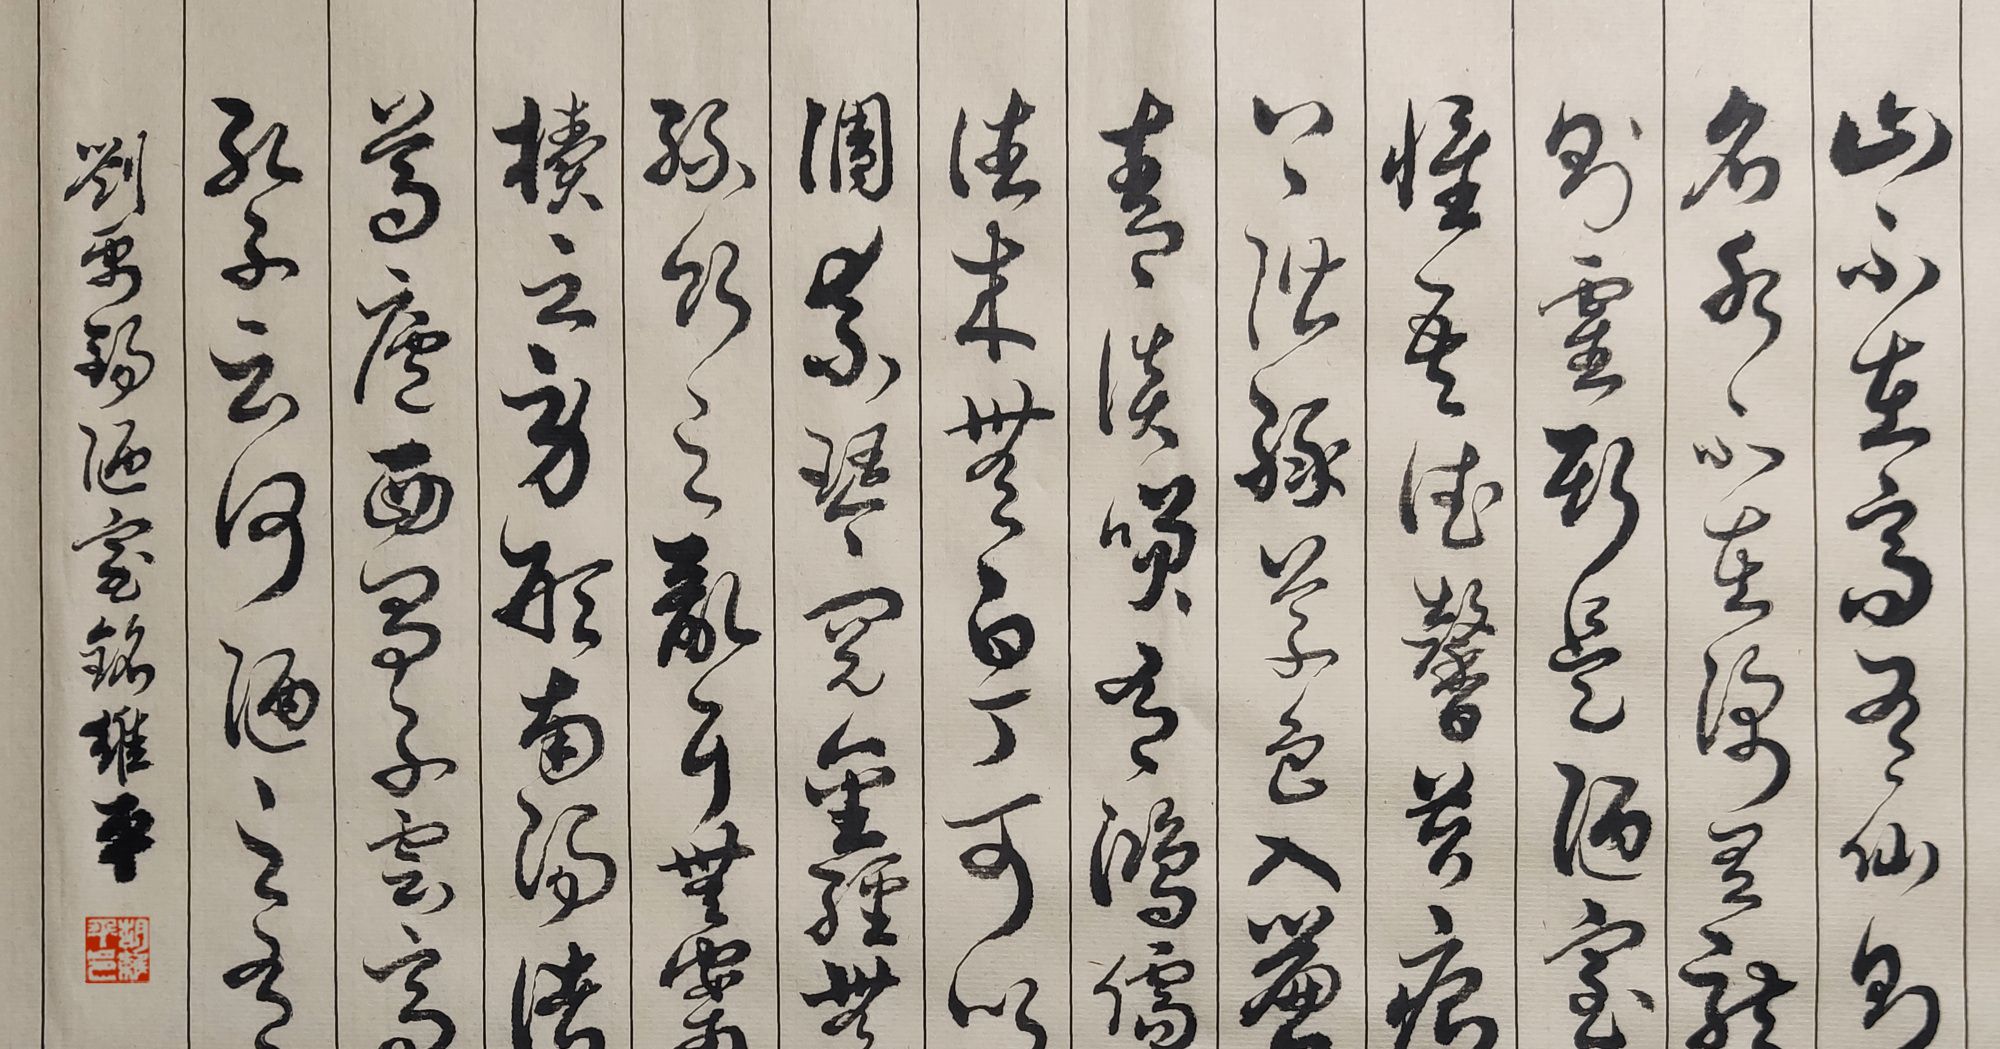 山不在高有仙則
名水不在深有龍
則靈斯是陋室
惟吾德馨苔痕
上階綠草色入簾
青談笑有鴻儒
往来無白丁可以
調素琴閱金經無
絲竹之亂耳無案
牘之勞形南陽諸
葛廬西蜀子雲亭
孔子云何陋之有
劉禹錫陋室銘雄平
胡雄平印